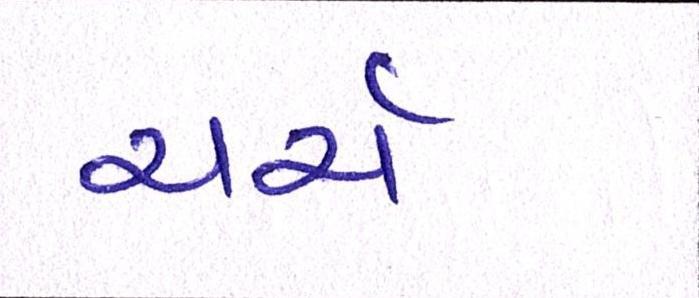 ચર્ચ